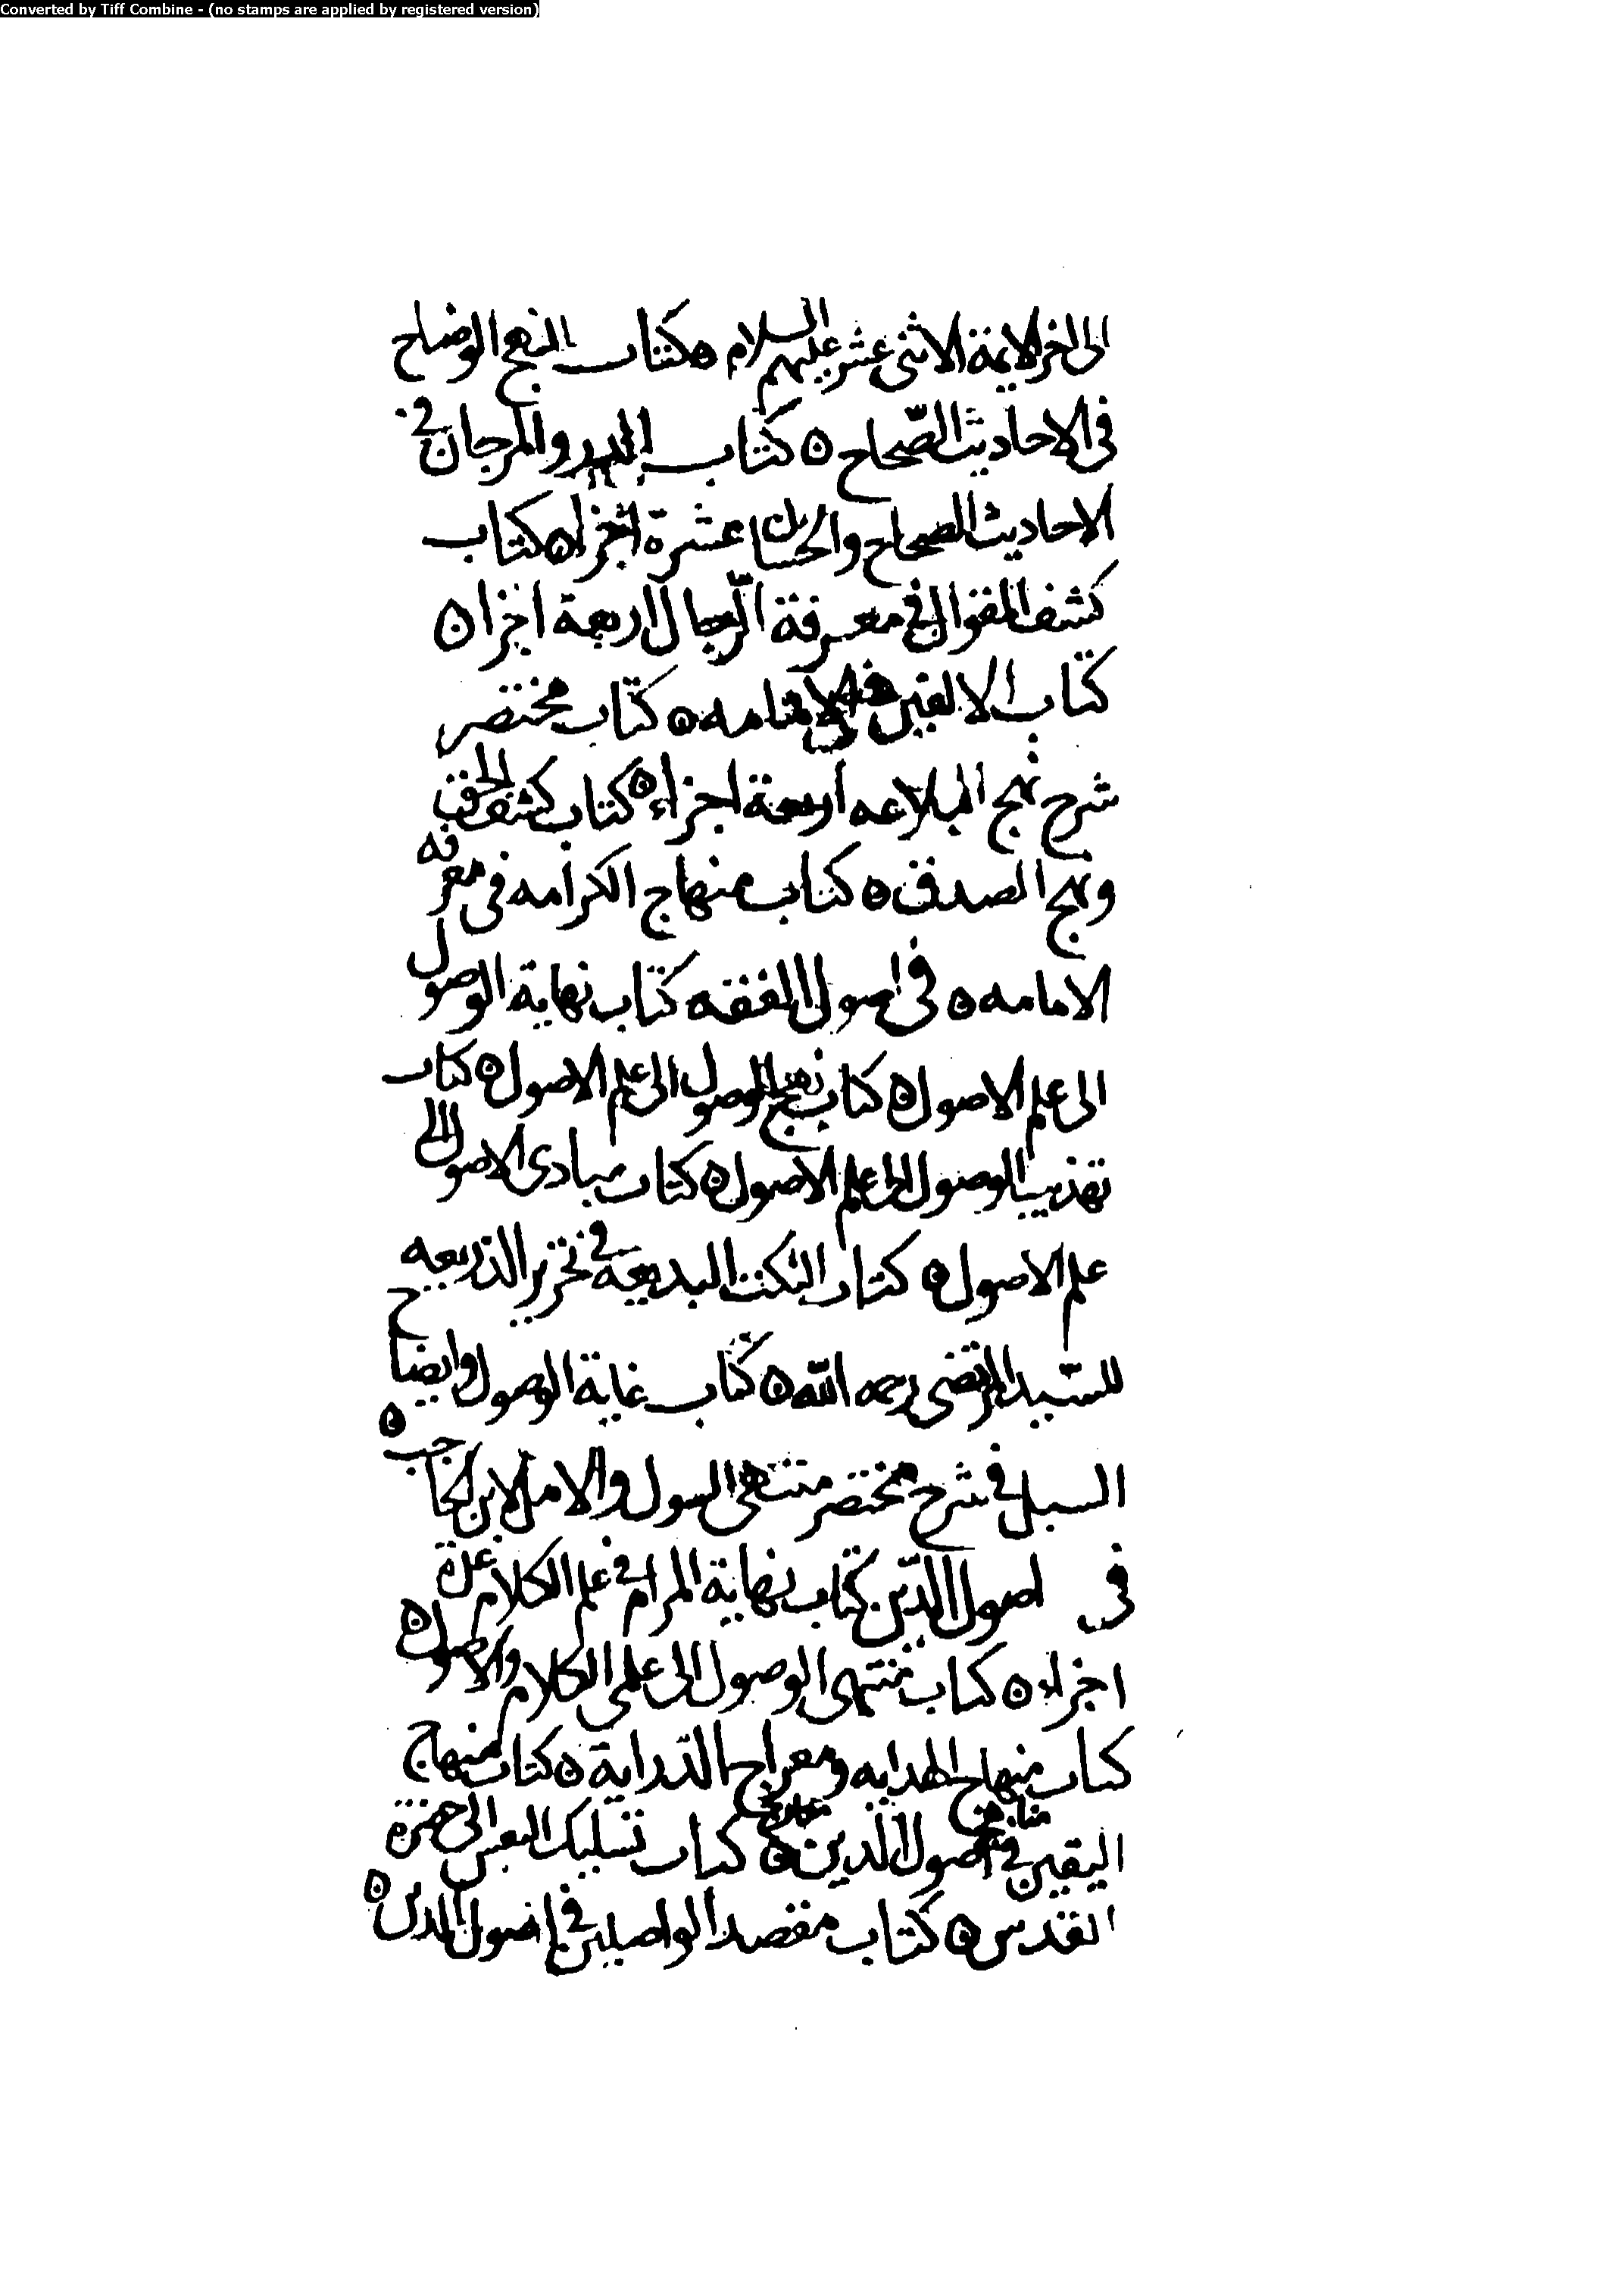 Converted by Tiff Combine - (no stamps are applied by registered version)
الى اخر الايمة الاثنى عشر عليهم السلام ه كتاب النهج الوضاح
فى الاحاديث الصّحاح ه كتاب الدر والمرجان في
الاحاديث الصحاح والحسان عشرة اجزاه كتاب
كشف المقوال في معرفة الرّجال اربعة اجزا ه
كتاب الالفين الامامه ه كتاب مختصر
شرح نهج البلاغه اربعة اجزاء ه كتاب كشف الحق
ونهج الصدق ه كتاب منهاج الكرامه فى معرفه
الامامه ه في اصول الفقه كتاب نهاية الوصول
الى علم الاصول ه كتاب نهج الوصول الى علم الاصول ه كتاب
تهذيب الوصول الى علم الاصول ه كتاب مبادى الاصول الى
علم الاصول ه كتاب النكت البديعة في تحرير الذريعه
للسّيد المرتضى رحمه الله ه كتاب غاية الوصول وايضاح
السبل في شرح مختصر منتهى السول والامل لابن الحاجب ه
في اصول الدّين كتاب نهاية المرام في علم الكلام عدة
اجزاء ه كتاب منتهى الوصول الى علمي الكلام والاصول ه
كتاب منهاج الهدايه ومعراج الدراية ه كتاب منهاج
اليقين في اصول الدين ه كتاب تسليك النفس الى حضرة
القدس ه كتاب مقصد الواصلين في اصول الدين ه